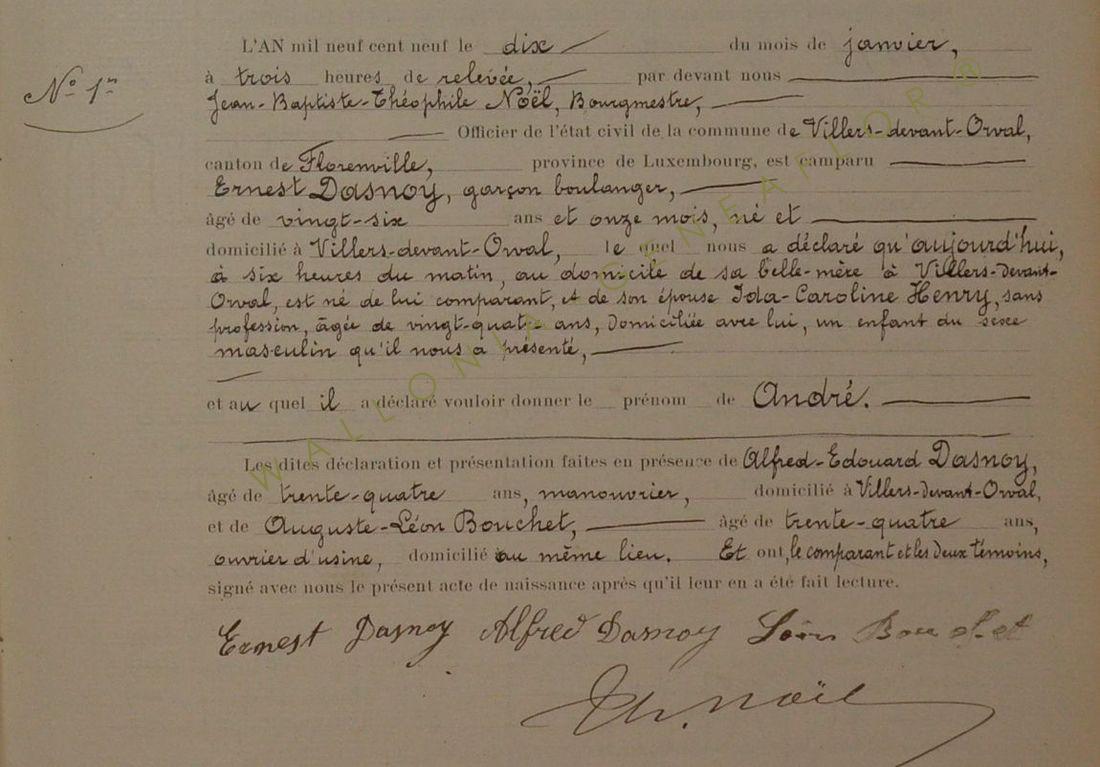 L'AN mil neuf cent neuf le dix du mois de janvier,
Nº 1er
à trois heures de relevée, par devant nous
Jean-Baptiste-Théophile Noël, Bourgmestre,
Officier de l'état civil de la commune de Villers-devant-Orval,
canton de Florenville, province de Luxembourg, est camparu
Ernest Dasnoy, garçon boulanger,
âgé de vingt-six ans et onze mois, né et
domicilié à Villers-devant-Orval, le quel nous a déclaré qu'aujourd'hui,
à six heures du matin, au domicile de sa belle-mère à Villers-devant-
Orval, est né de lui comparant, et de son épouse Ida-Caroline Henry, sans
profession, âgée de vingt-quatre ans, domiciliée avec lui, un enfant du sexe
masculin qu'il nous a présenté,
et au quel il a déclaré vouloir donner le prénom de André.
Les dites déclaration et présentation faites en présence de Alfred-Edouard Dasnoy,
âgé de trente-quatre ans, manouvrier, domicilié à Villers-devant-Orval,
et de Auguste-Léon Bouchet, âgé de trente-quatre ans,
ouvrier d'usine, domicilié au même lieu. Et ont, le comparant et les deux témoins,
signé avec nous le présent acte de naissance après qu'il leur en a été fait lecture.
Ernest Dasnoy Alfred Dasnoy Léon Bouchet
Th. Noël
WALLONIA GENEAFLOR ®